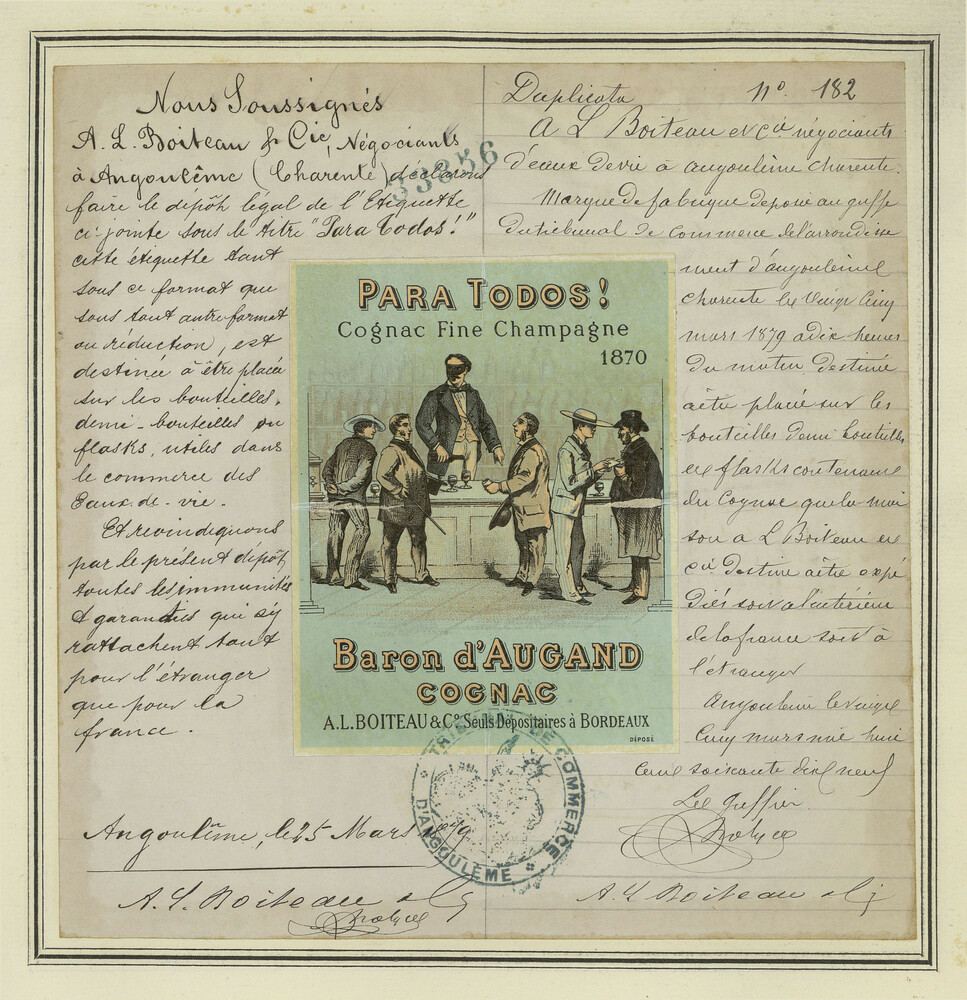 Nous Soussignés
A. L. Boiteau & Cie, Négociants
à Angoulême (Charente) déclarons
faire le dépôt légal de l'Etiquette
ci-jointe sous le titre "Para Todos!"
cette étiquette tant
sous ce format que
sous tout autre format
ou réduction, est
destinée à être placée
sur les bouteilles,
demi-bouteilles ou
flasks, utiles dans
le commerce des
Eaux-de-vie.
Et revindiquons
par le présent dépôt
toutes les immunités
& garanties qui s'y
rattachent tant
pour l'étranger
que pour la
france.
Angoulême, le 25 Mars 1879
A. L. Boiteau & Cie
33856
PARA TODOS!
Cognac Fine Champagne
1870
Baron d'AUGAND
COGNAC
A.L. BOITEAU & Co Seuls Dépositaires à BORDEAUX
DÉPOSÉ
TRIBUNAL DE COMMERCE
D'ANGOULÊME
Duplicata no. 182
A L Boiteau et Cie négociants
d'eaux de vie à angoulême charente.
Marque de fabrique déposé au greffe
du tribunal de commerce de l'arrondisse
ment d'angoulême
charente le vingt cinq
mars 1879 a dix heures
du matin destiné
a être placé sur les
bouteilles demi bouteilles
et flasks contenant
du Cognac que la mai
son A L Boiteau et
Cie destine a être expé
diés soit a l'intérieur
de la france soit à
l'étranger
Angoulême le vingt
Cinq mars mil huit
cent soixante dix neuf
Le Greffier
A L Boiteau & Cie